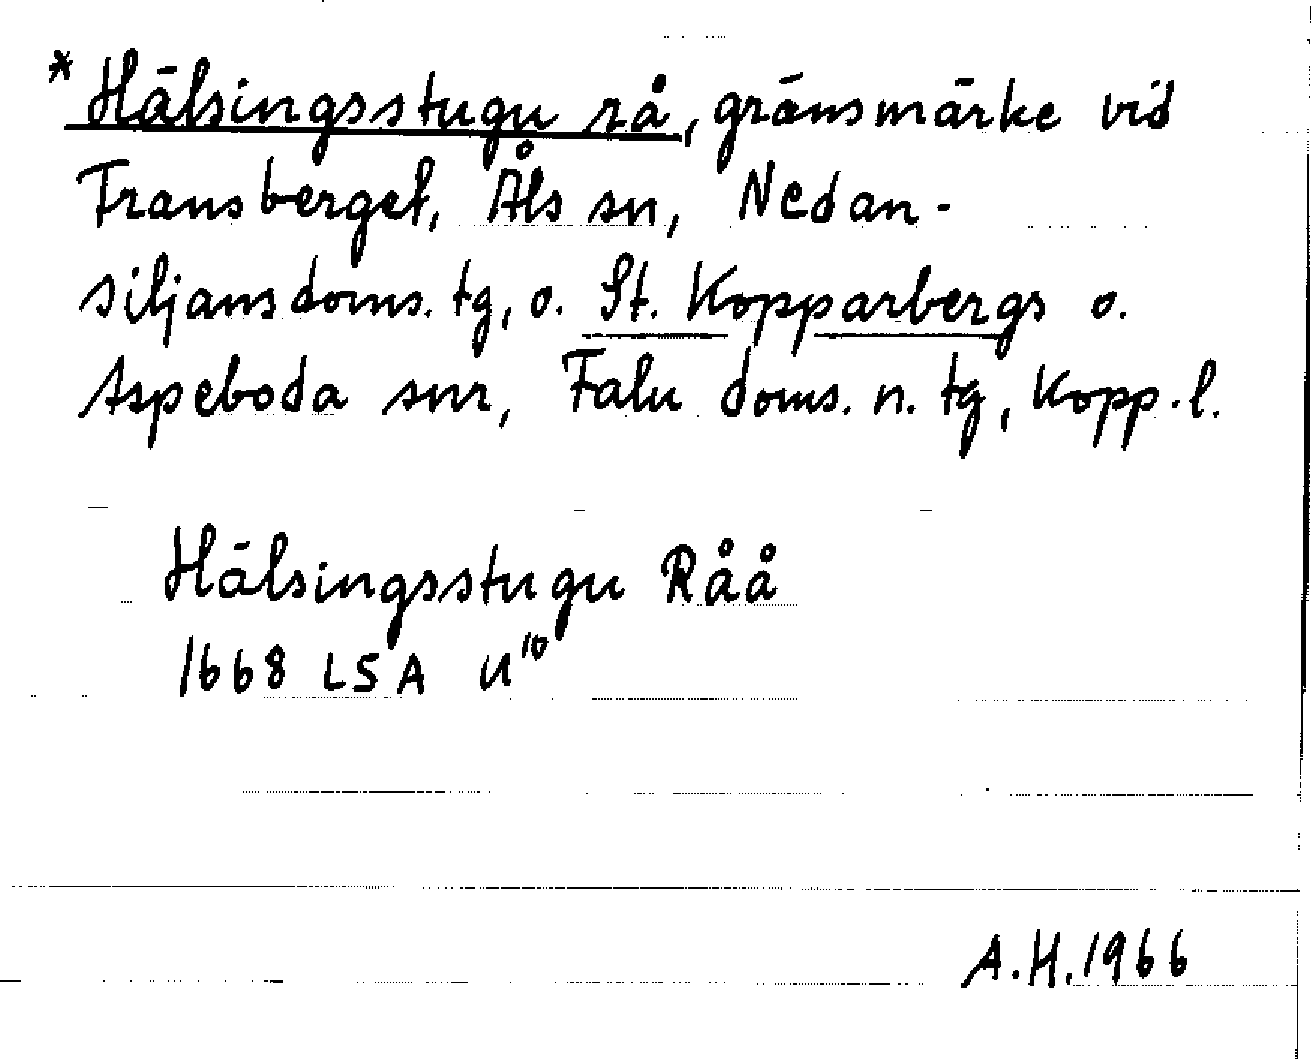 * Hälsingsstugu rå, gränsmärke vid
Transberget, Åls sn, Nedan-
siljans doms. tg, o. St. Kopparbergs o.
Aspeboda snr, Falu doms. n. tg, Kopp. l.
Hälsingsstugu Råå
1668 LSA U¹⁰
A.H. 1966